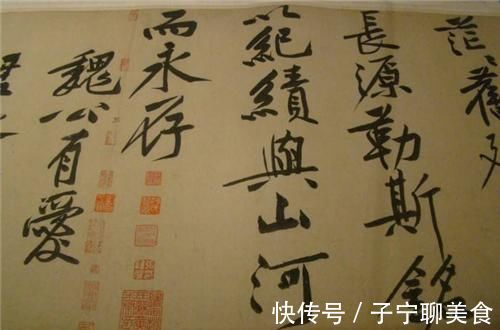 長源勒斯銘
以紀績與山河
而永存
魏公有愛
快传号 / 子宁聊美食